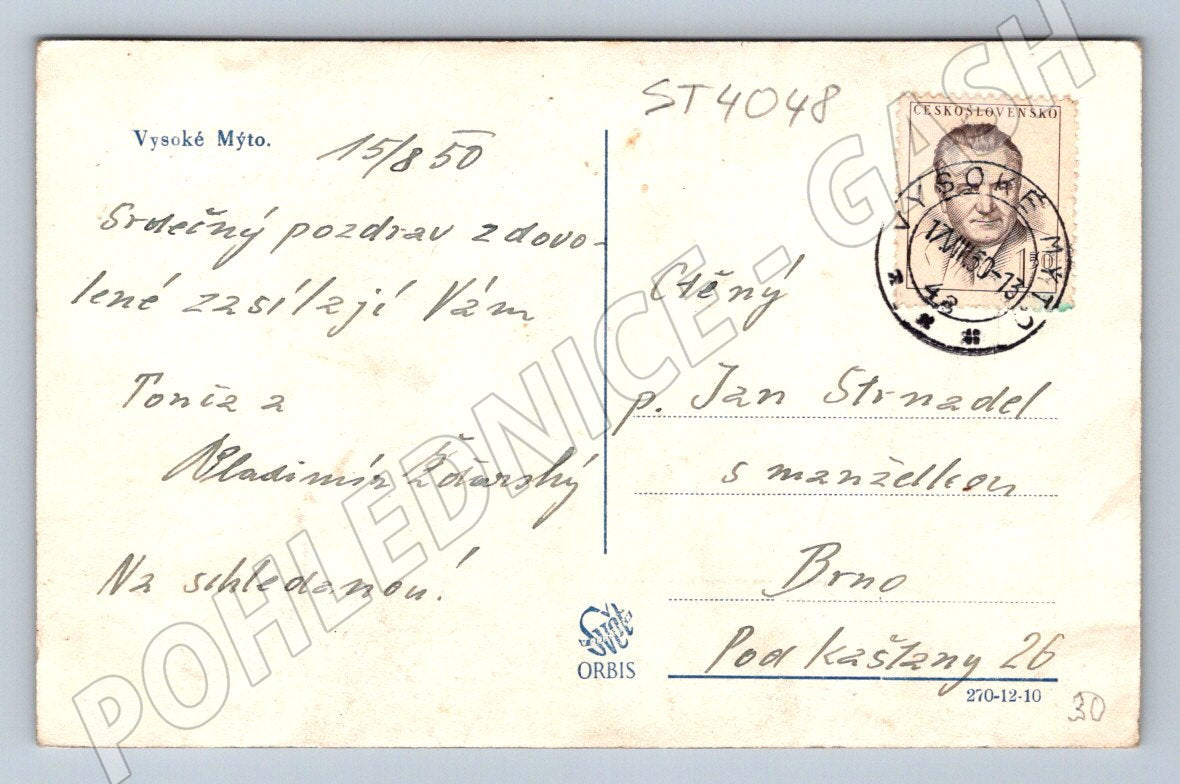 Vysoké Mýto.
15/8 50
Srdečný pozdrav z dovo-
lené zasílají Vám
Tonča a
Vladimír
Na schledanou!
ST4048
ČESKOSLOVENSKO
1.50
VYSOKÉ MÝTO
17.VIII.50-13
Ctěný
p. Jan Strnadel
s manželkou
Brno
Pod kaštany 26
Svět
ORBIS
270-12-10
30
POHLEDNICE - GASH